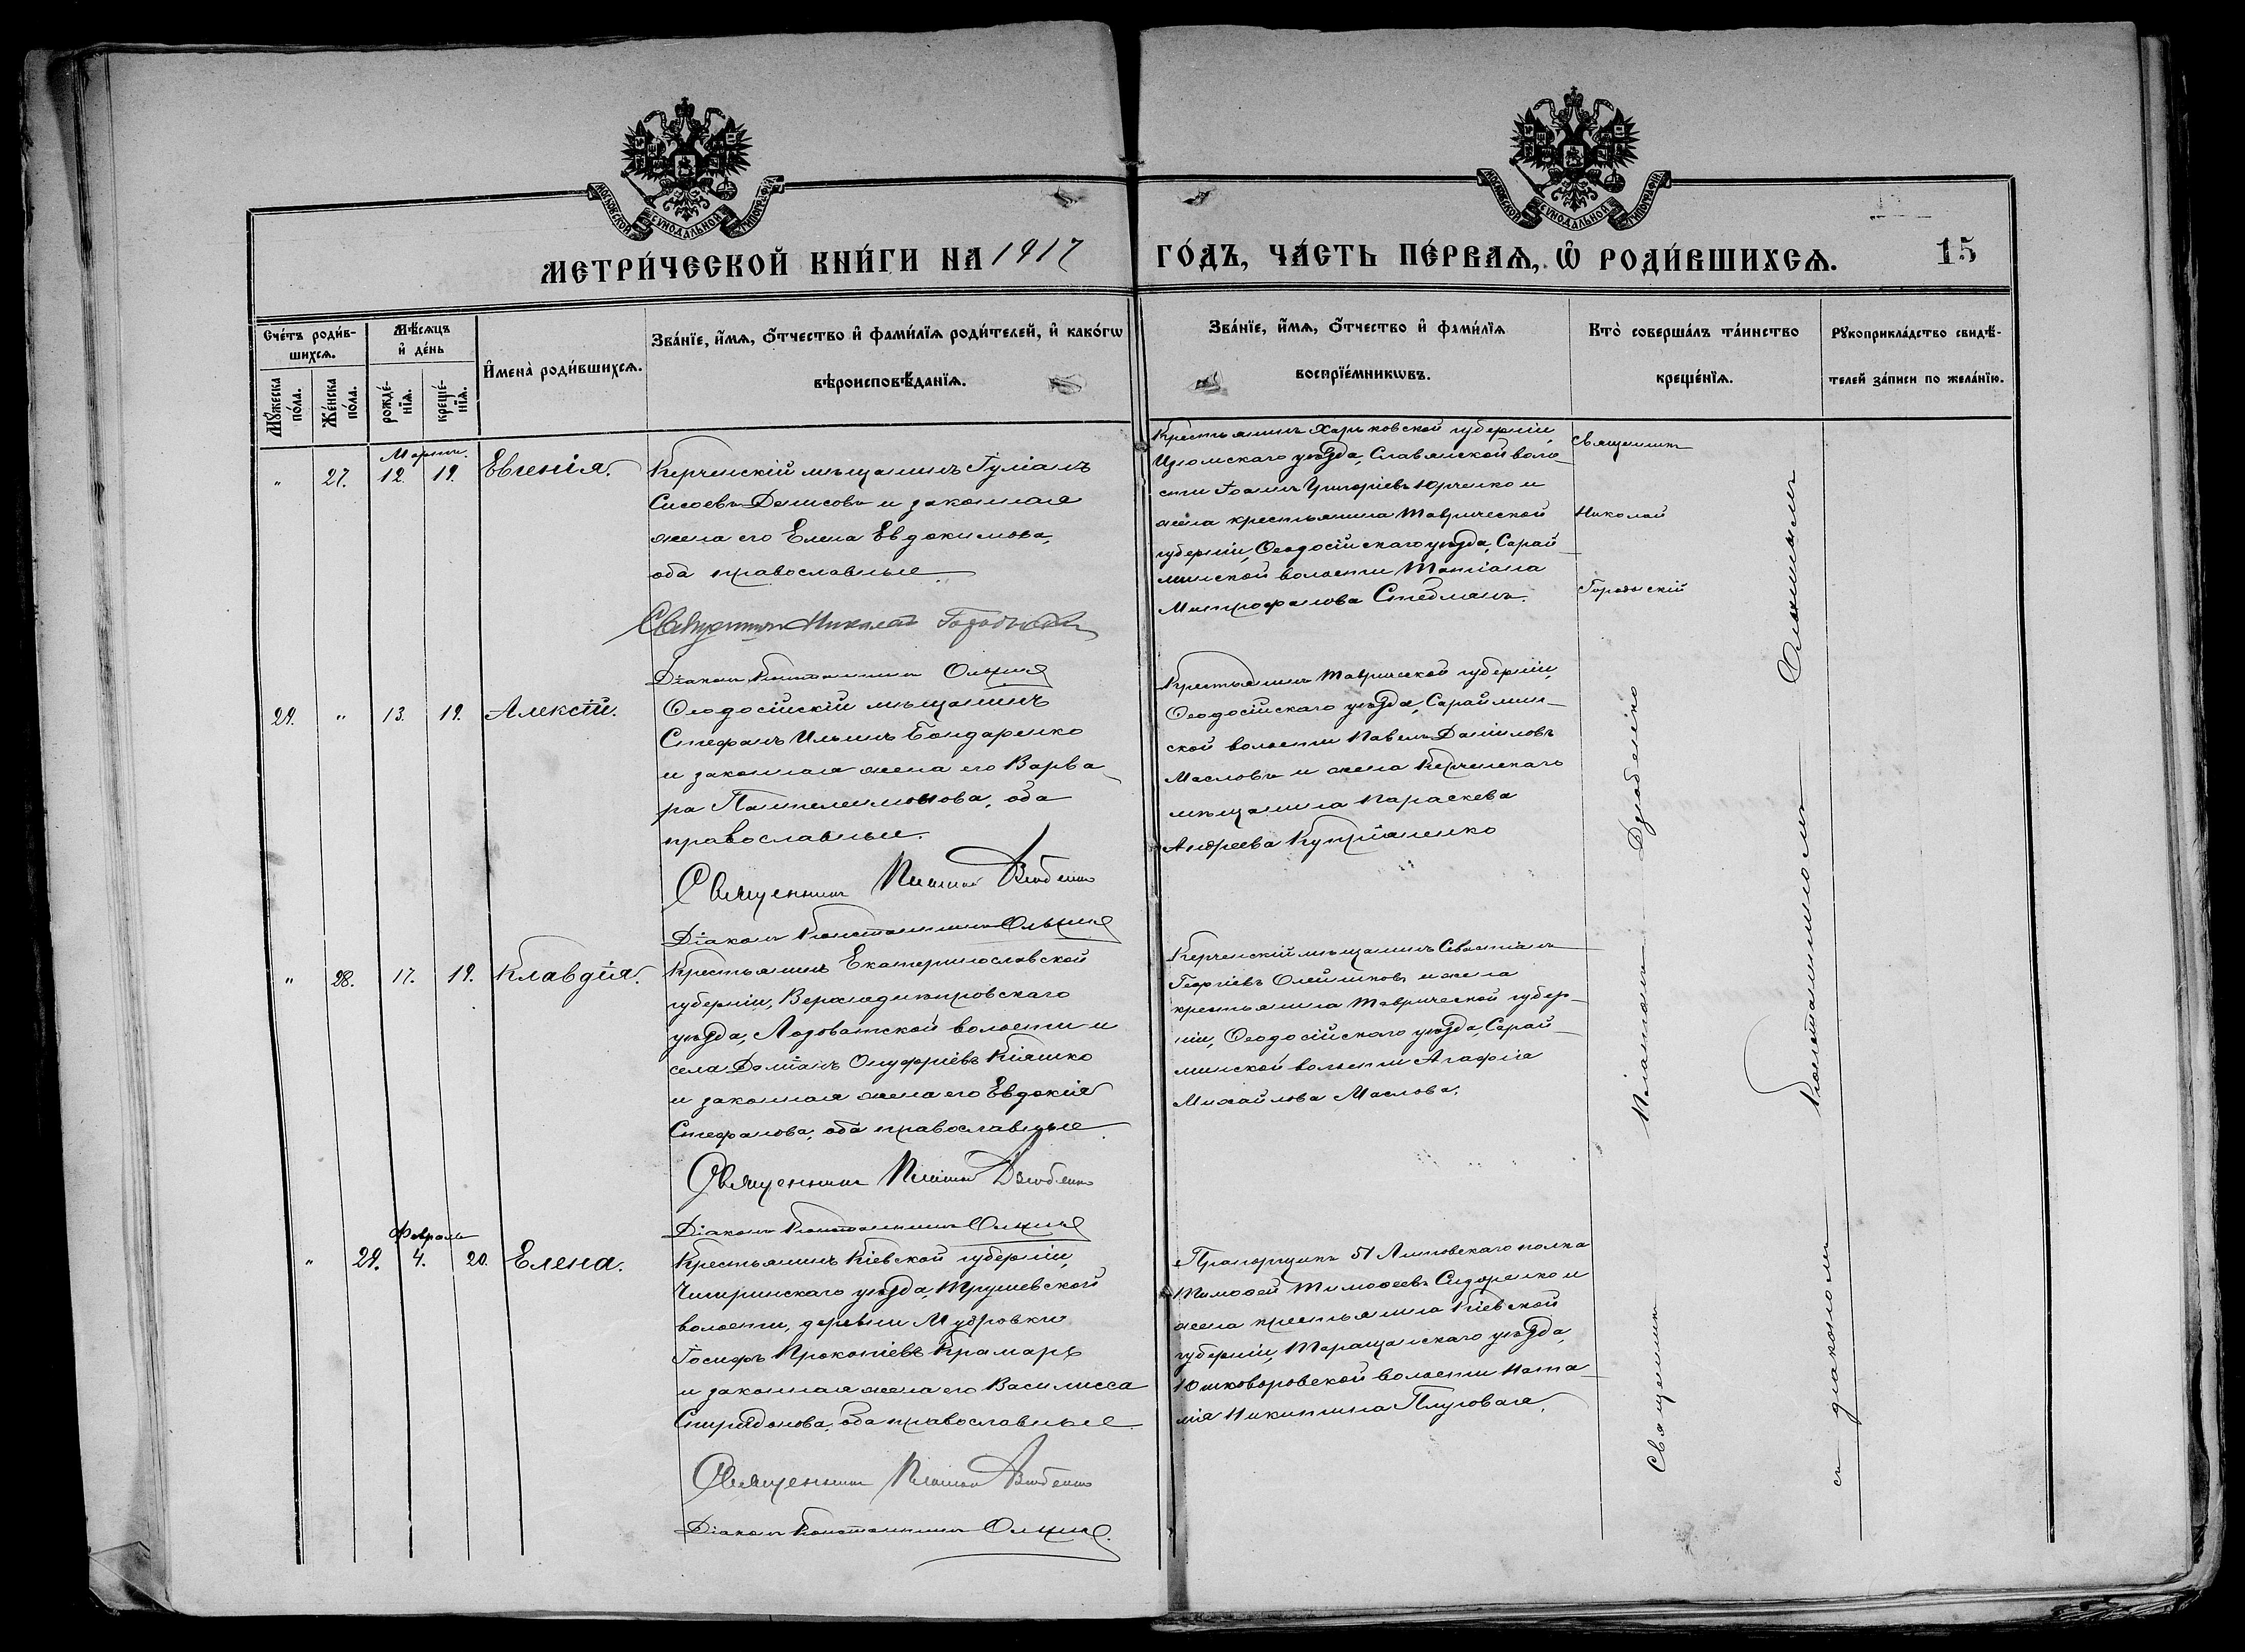 МОСКОВСКОЙ СѴНОДАЛЬНОЙ ТИПОГРАФІИ
МОСКОВСКОЙ СѴНОДАЛЬНОЙ ТИПОГРАФІИ
МЕТРИ́ЧЕСКОЙ КНИ́ГИ НА 1917 ГО́ДЪ, ЧА́СТЬ ПЕ́РВАѦ, Ѽ РОДИ́ВШИХСѦ.
15
Сче́тъ роди́в-
шихсѧ.
Мꙋ́жеска
по́ла.
Же́нска
по́ла.
Мѣ́сѧцъ
и҆ де́нь
рожде́-
нїѧ.
креще́-
нїѧ.
И҆мена̀ роди́вшихсѧ.
Зва́нїе, и҆́мѧ, ѻ҆́тчество и҆ фами́лїѧ роди́телей, и҆ како́гѡ
вѣроисповѣ́данїѧ.
Зва́нїе, и҆́мѧ, ѻ҆́тчество и҆ фами́лїѧ
воспрїе́мникѡвъ.
Кто̀ соверша́лъ та́инство
креще́нїѧ.
Рꙋкоприкла́дство свидѣ́-
телей за́писи по жела́нїю.
Мартъ.
" 27. 12. 19. Евгенія.
Керченскій мѣщанинъ Іуліанъ
Сисоевъ Денисовъ и законная
жена его Елена Евдокимова,
оба православные.
Священникъ Николай Городынскій
Діаконъ Константинъ
Крестьянинъ Харьковской губерніи,
Изюмскаго уѣзда, Славянской воло-
сти Іоаннъ Григоріевъ Юрченко и
жена крестьянина Таврической
губерніи, Ѳеодосійскаго уѣзда, Сарай-
минской волости Татіана
Митрофанова
Священникъ
Николай
29. " 13. 19. Алексій.
Ѳеодосійскій мѣщанинъ
Стефанъ Ильинъ Бондаренко
и законная жена его Варва-
ра Пантелимонова, оба
православные.
Священникъ
Діаконъ Константинъ
Крестьянинъ Таврической губерніи,
Ѳеодосійскаго уѣзда, Сараймин-
ской волости Павелъ Даніиловъ
Масловъ и жена Керченскаго
мѣщанина Параскева
Андреева Купріяненко
" 28. 17. 19. Клавдія.
Крестьянинъ Екатеринославской
губерніи, Верхнеднѣпровскаго
уѣзда, Лозоватской волости и
села Даміанъ Онуфріевъ Кіяшко
и законная жена его Евдокія
Стефанова, оба православные.
Священникъ
Діаконъ Константинъ
Керченскій мѣщанинъ Севастіанъ
Георгіевъ Олейниковъ и жена
крестьянина Таврической губер-
ніи, Ѳеодосійскаго уѣзда, Сарай-
минской волости Агафія
Михайлова Маслова.
Февраля
" 29. 4. 20. Елена.
Крестьянинъ Кіевской губерніи,
Чигиринскаго уѣзда, Трушевской
волости, деревни Мудровки
Іосифъ Прокопіевъ Крамарь
и законная жена его Василисса
Спиридонова, оба православные.
Священникъ
Діаконъ Константинъ
Прапорщикъ 51 Литовскаго полка
Тимоѳей Тимоѳеевъ Сидоренко и
жена крестьянина Кіевской
губерніи, Таращанскаго уѣзда,
волости Ната-
лія Никитина Плуговая.
Священникъ
съ діакономъ Константиномъ